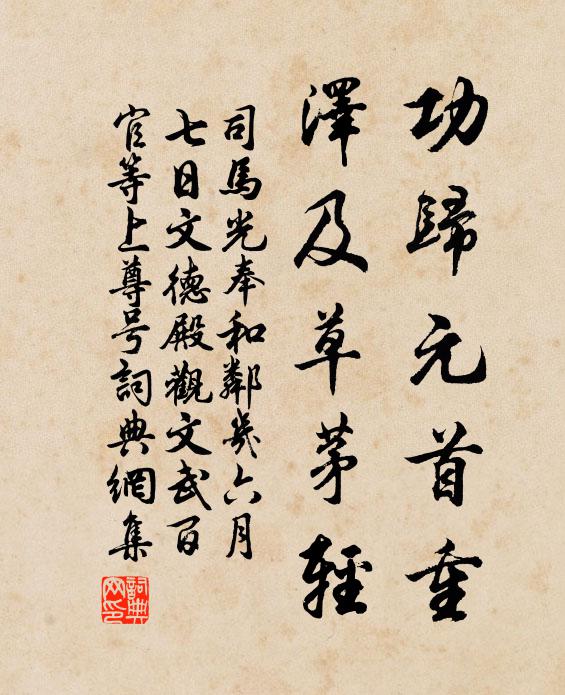 功歸元首重
澤及草茅輕
司馬光奉和鄰幾六月
七日文德殿觀文武百
官等上尊号詞典網集
詞典
网印